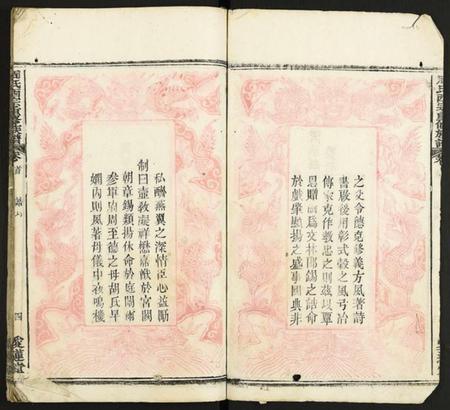 之父令德克修義方風著詩
書啟後用彰式穀之風弓冶
傳家克作教忠之則茲以覃
恩贈爾為文林郎錫之誥命
於戲肇顯揚之盛事國典非
私酬燕翼之深情臣心益勵
制曰壼教凝祥懋嘉猷於宮闕
朝章錫類揚休命於庭闈爾
參軍周王德之母胡氏早
嫺內則風著丹儀中夜鳴機
卷首
四
愛蓮堂